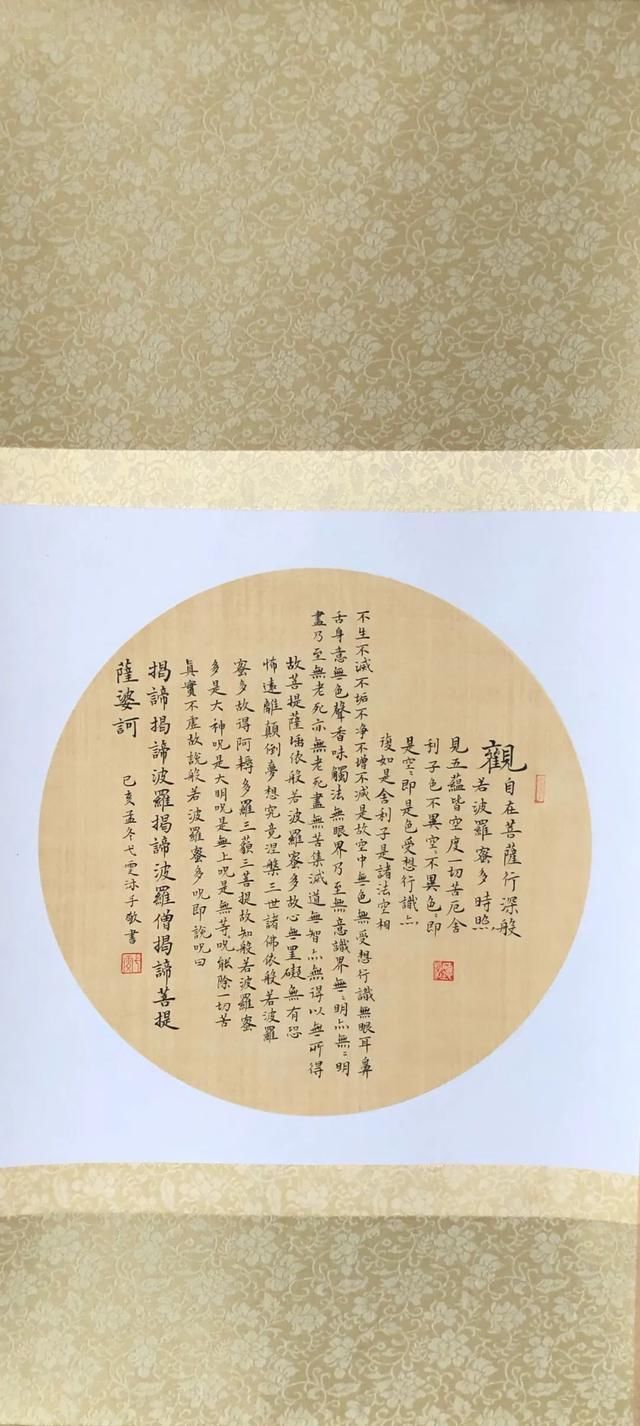 觀自在菩薩行深般
若波羅蜜多時照
見五蘊皆空度一切苦厄舍
利子色不異空〻不異色〻即
是空〻即是色受想行識亦
復如是舍利子是諸法空相
不生不滅不垢不净不增不減是故空中無色無受想行識無眼耳鼻
舌身意無色聲香味觸法無眼界乃至無意識界無〻明亦無〻明
盡乃至無老死亦無老死盡無苦集滅道無智亦無得以無所得
故菩提薩埵依般若波羅蜜多故心無罣礙無有恐
怖遠離顛倒夢想究竟涅槃三世諸佛依般若波羅
蜜多故得阿耨多羅三藐三菩提故知般若波羅蜜
多是大神呪是大明呪是無上呪是無等呪能除一切苦
真實不虛故說般若波羅蜜多呪即說呪曰
揭諦揭諦波羅揭諦波羅僧揭諦菩提
薩婆訶
己亥孟冬弋雯沐手敬書